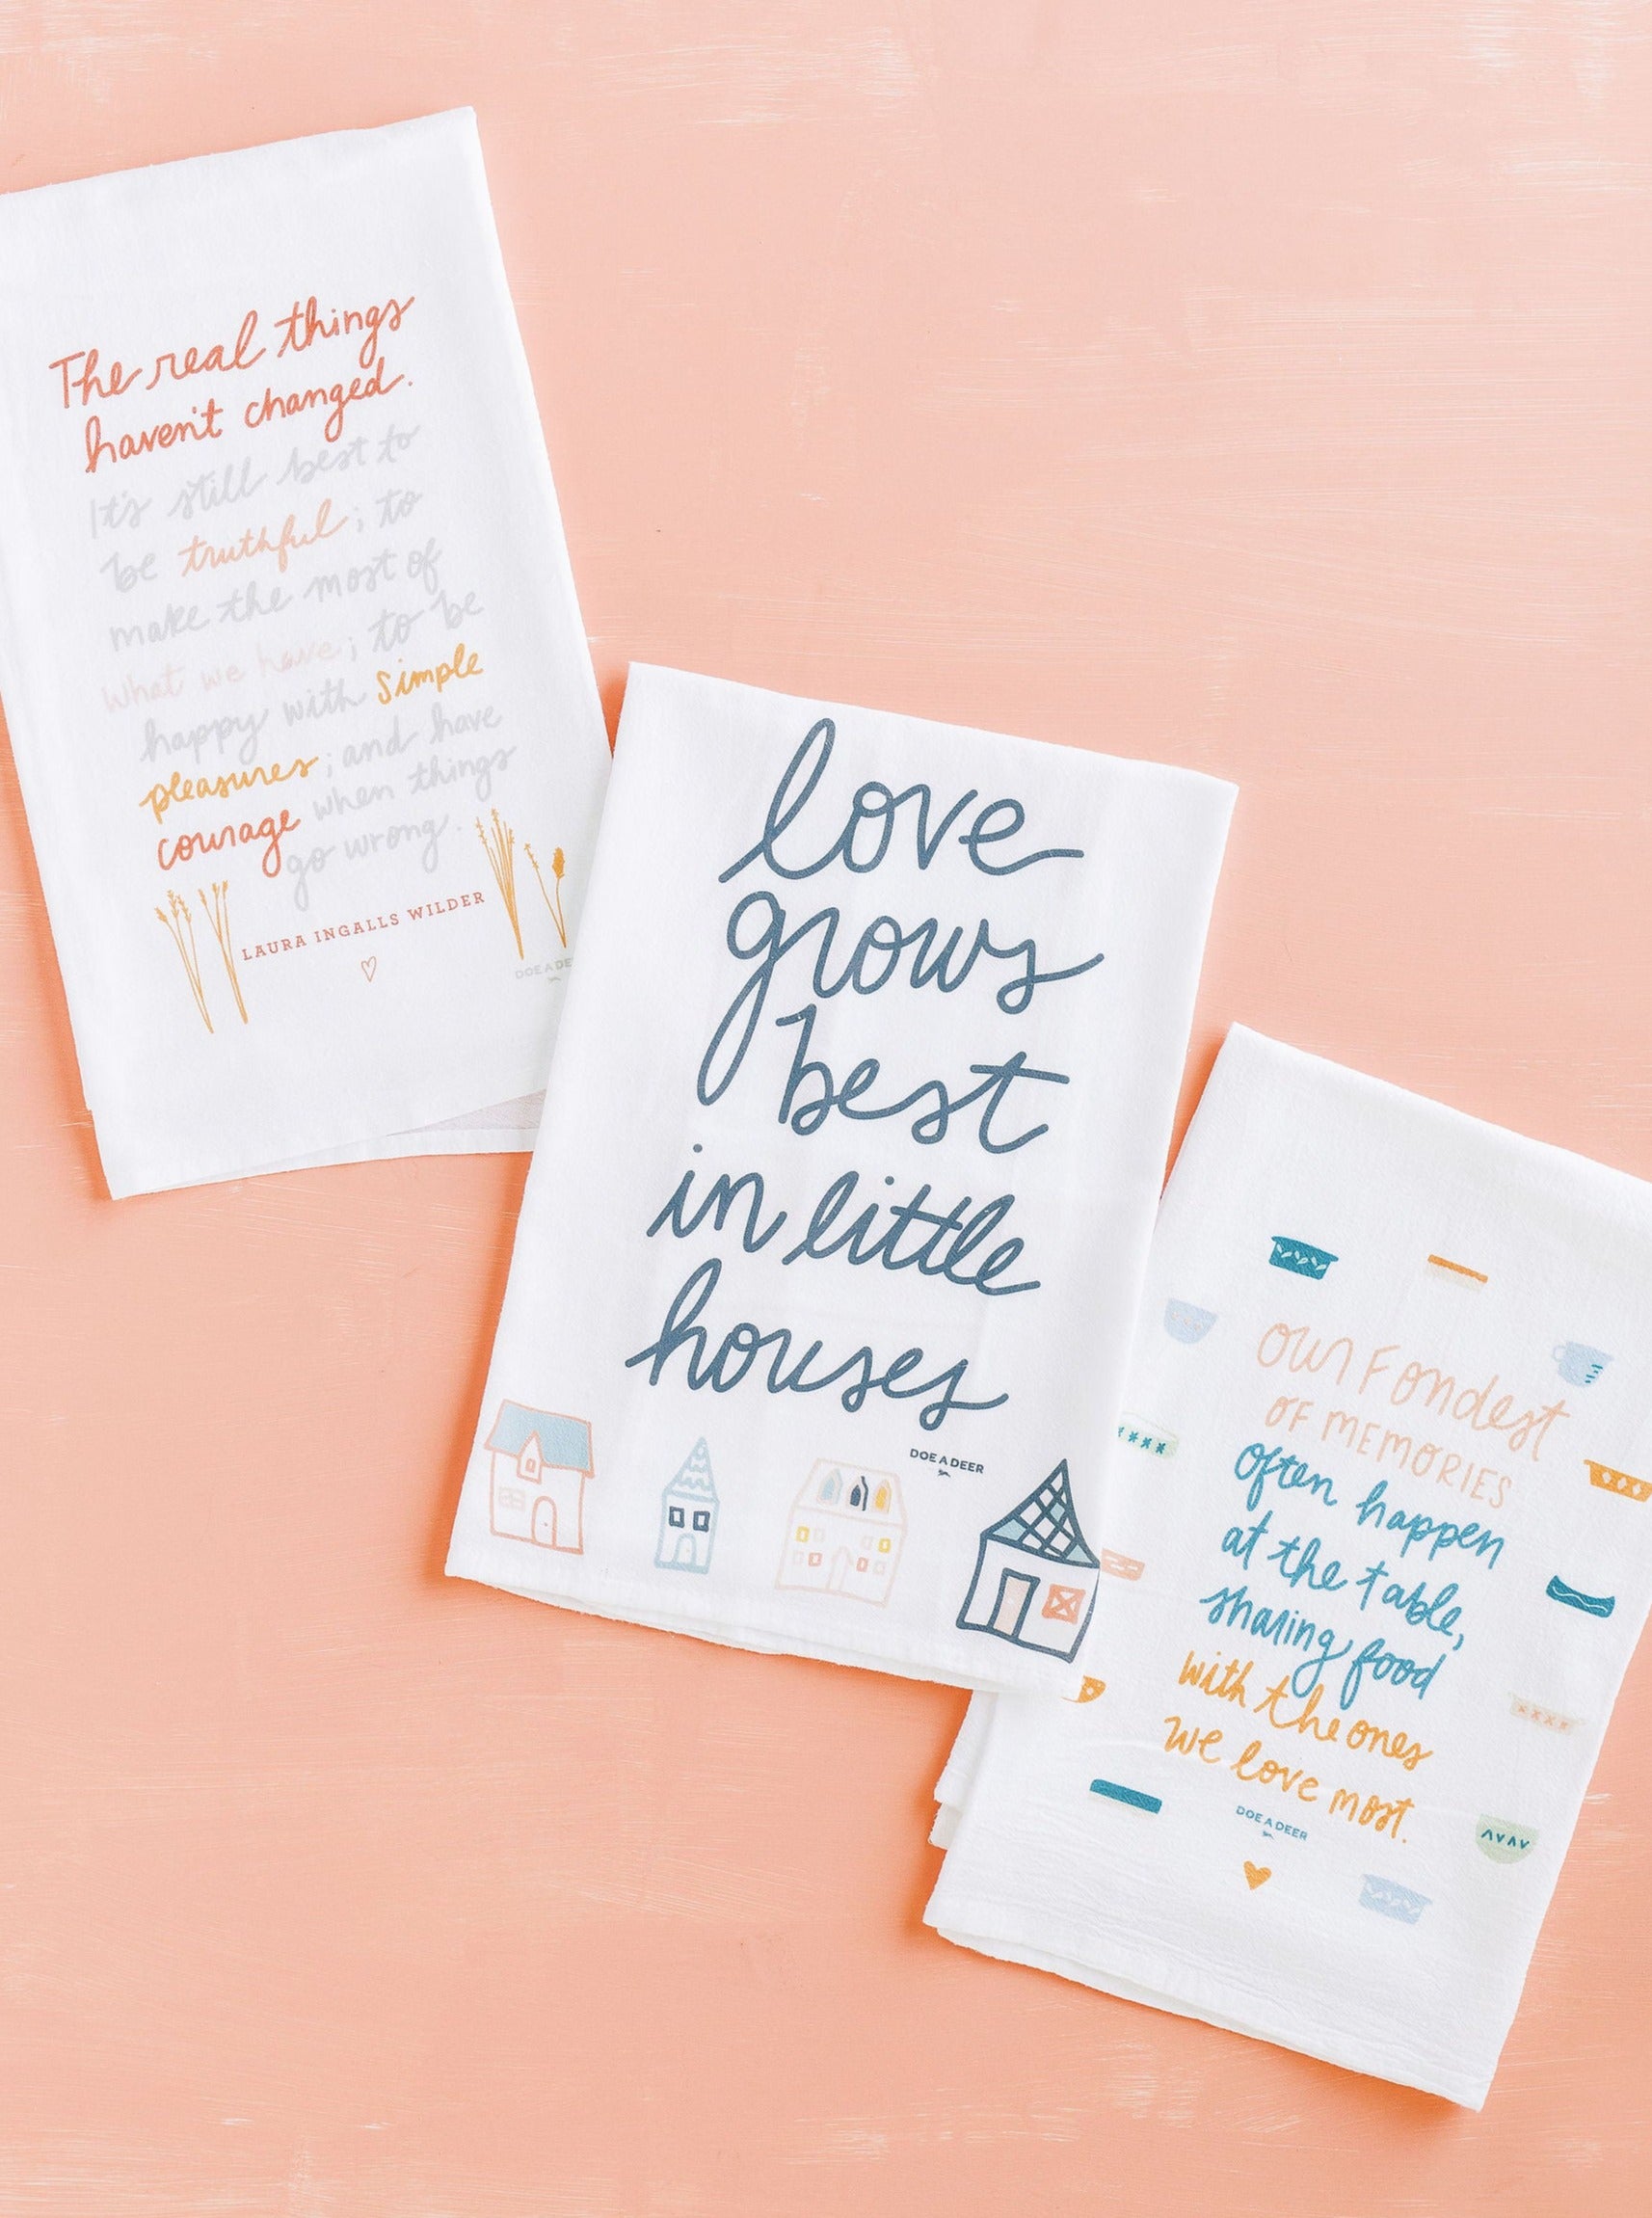 The real things
haven't changed.
It's still best to
be truthful; to
make the most of
what we have; to be
happy with simple
pleasures; and have
courage when things
go wrong.
LAURA INGALLS WILDER
DOE A DE
love
grows
best
in little
houses
DOE A DEER
OUR FONDEST
OF MEMORIES
often happen
at the table,
sharing food
with the ones
we love most.
DOE A DEER